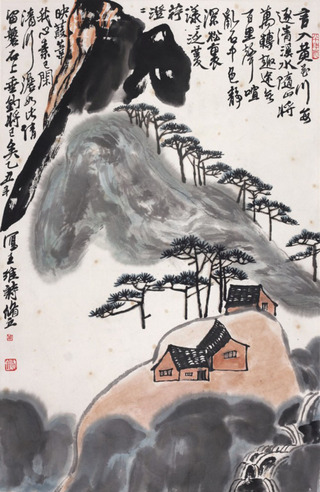 言入黄花川每
逐清溪水隨山將
萬轉趣途無
百里聲喧
亂石中色靜
深松裏
漾泛菱
荇
澄二
映葭葦
我心素已閑
清川澹如此請
留盤石上垂釣將已矣乙丑年
寫王維詩